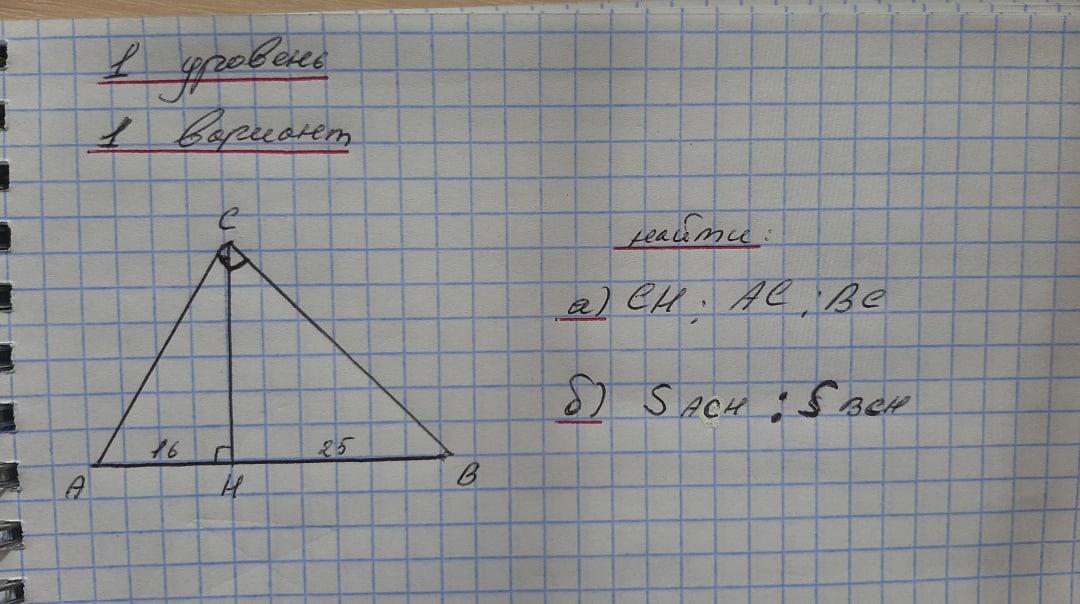 1 уровень
1 вариант
C
найти:
а) CH; AC; BC
б) S ACH : S BCH
16 25
A H B